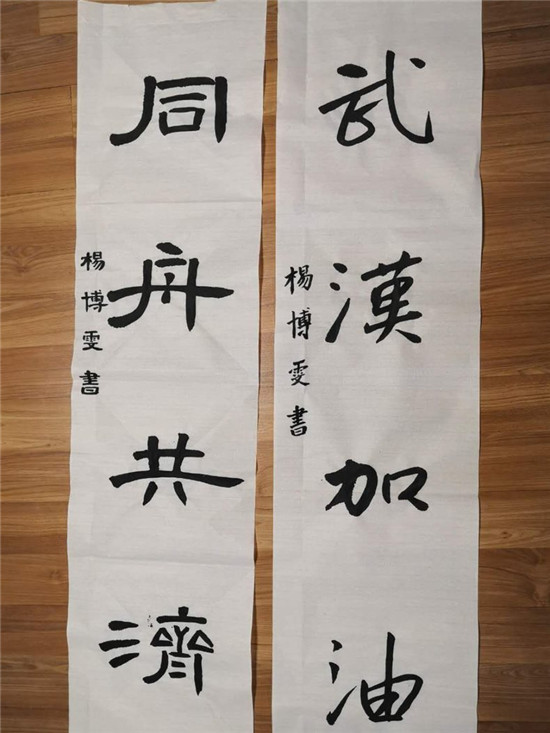 武漢加油
楊博雯書
同舟共濟
楊博雯書